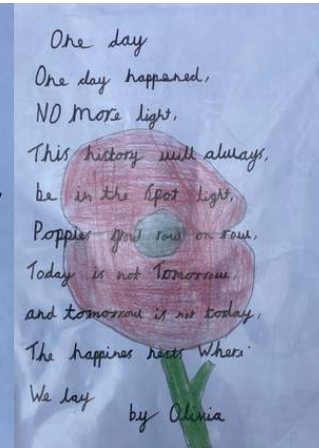 One day
One day happened,
NO More light,
This history will always,
be in the spot light,
Poppies grow row on row,
Today is not Tomorrow,
and tomorrow is not today,
The happines rests Where
We lay
by Olivia